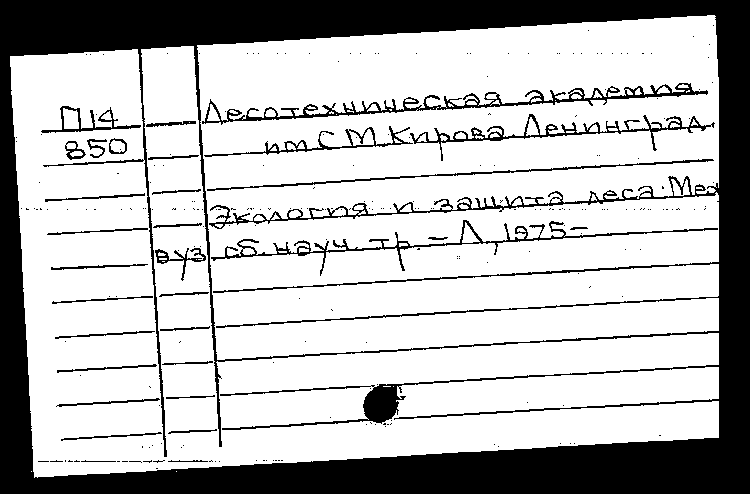 П14 Лесотехническая академия
850 им С М Кирова. Ленинград.
Экология и защита леса: Меж
вуз. сб. науч. тр. – Л, 1975–